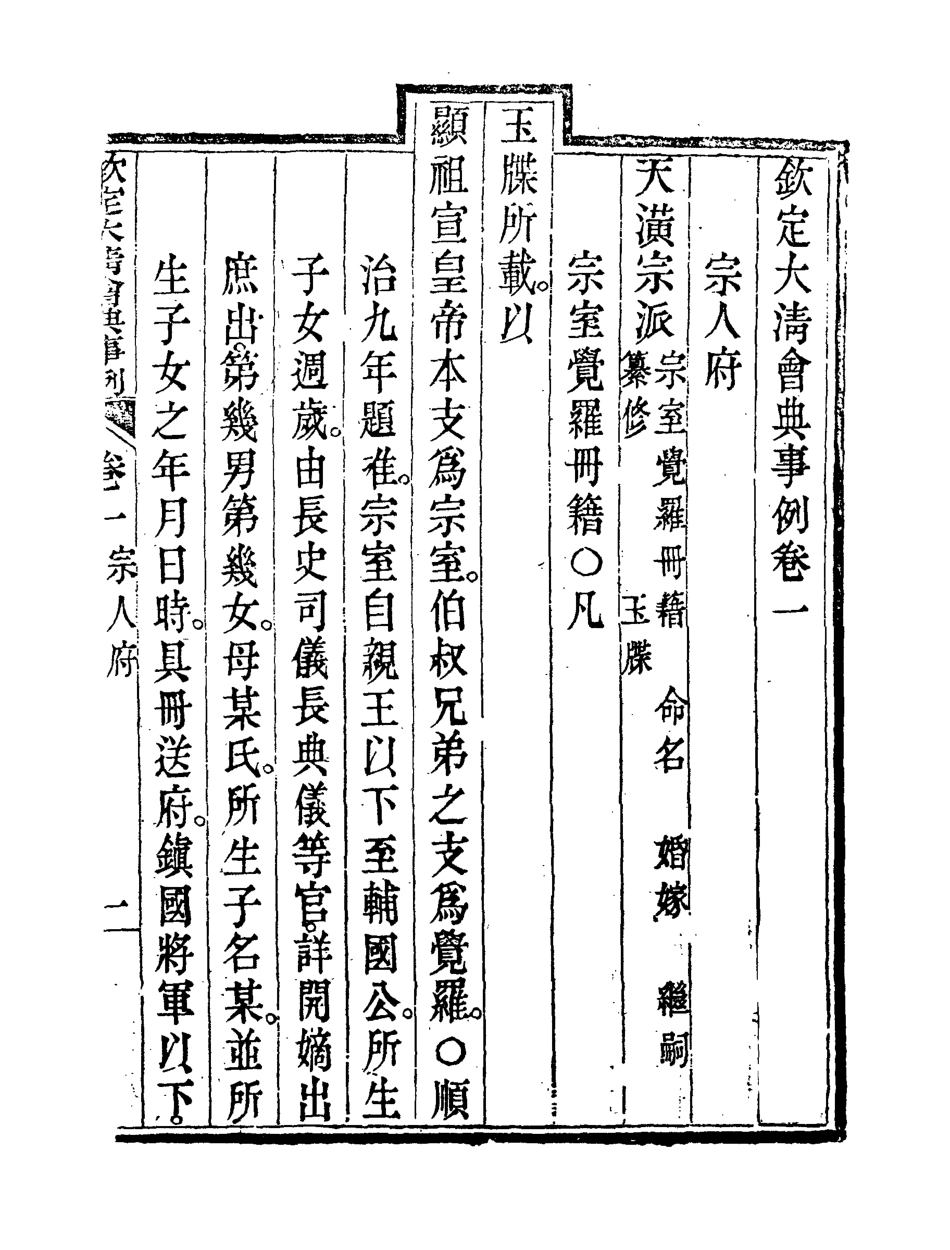 欽定大淸會典事例卷一
宗人府
天潢宗派 宗室覺羅冊籍 命名 婚嫁 繼嗣
纂修 玉牒
宗室覺羅冊籍○凡
玉牒所載。以
顯祖宣皇帝本支爲宗室。伯叔兄弟之支爲覺羅。○順
治九年題准。宗室自親王以下至輔國公。所生
子女週歲。由長史司儀長典儀等官。詳開嫡出
庶出。第幾男第幾女。母某氏。所生子名某。並所
生子女之年月日時。具冊送府。鎭國將軍以下。
欽定大淸會典事例 卷一 宗人府 一